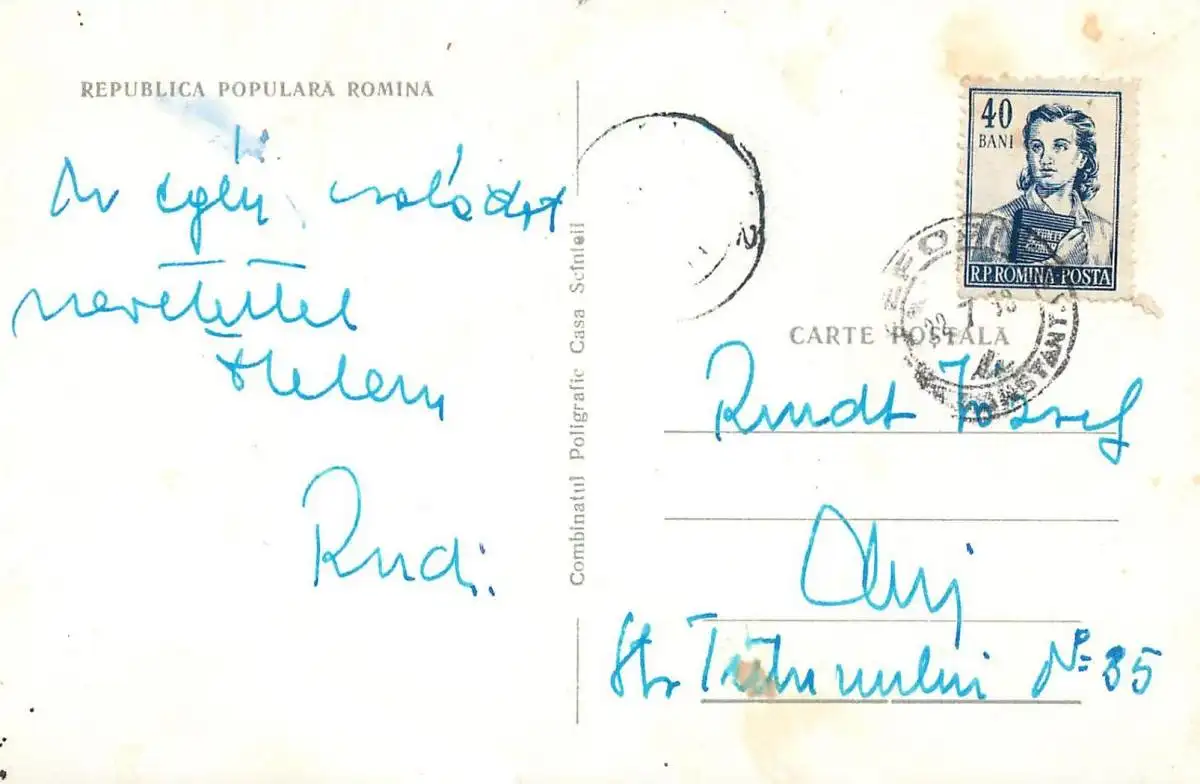 REPUBLICA POPULARĂ ROMINĂ
Az egész családot
Helen
Rudi
Combinatul Poligrafic Casa Scînteii
40
BANI
R.P.ROMINA-POSTA
CARTE POȘTALĂ
Rundt József
Cluj
Str No 35